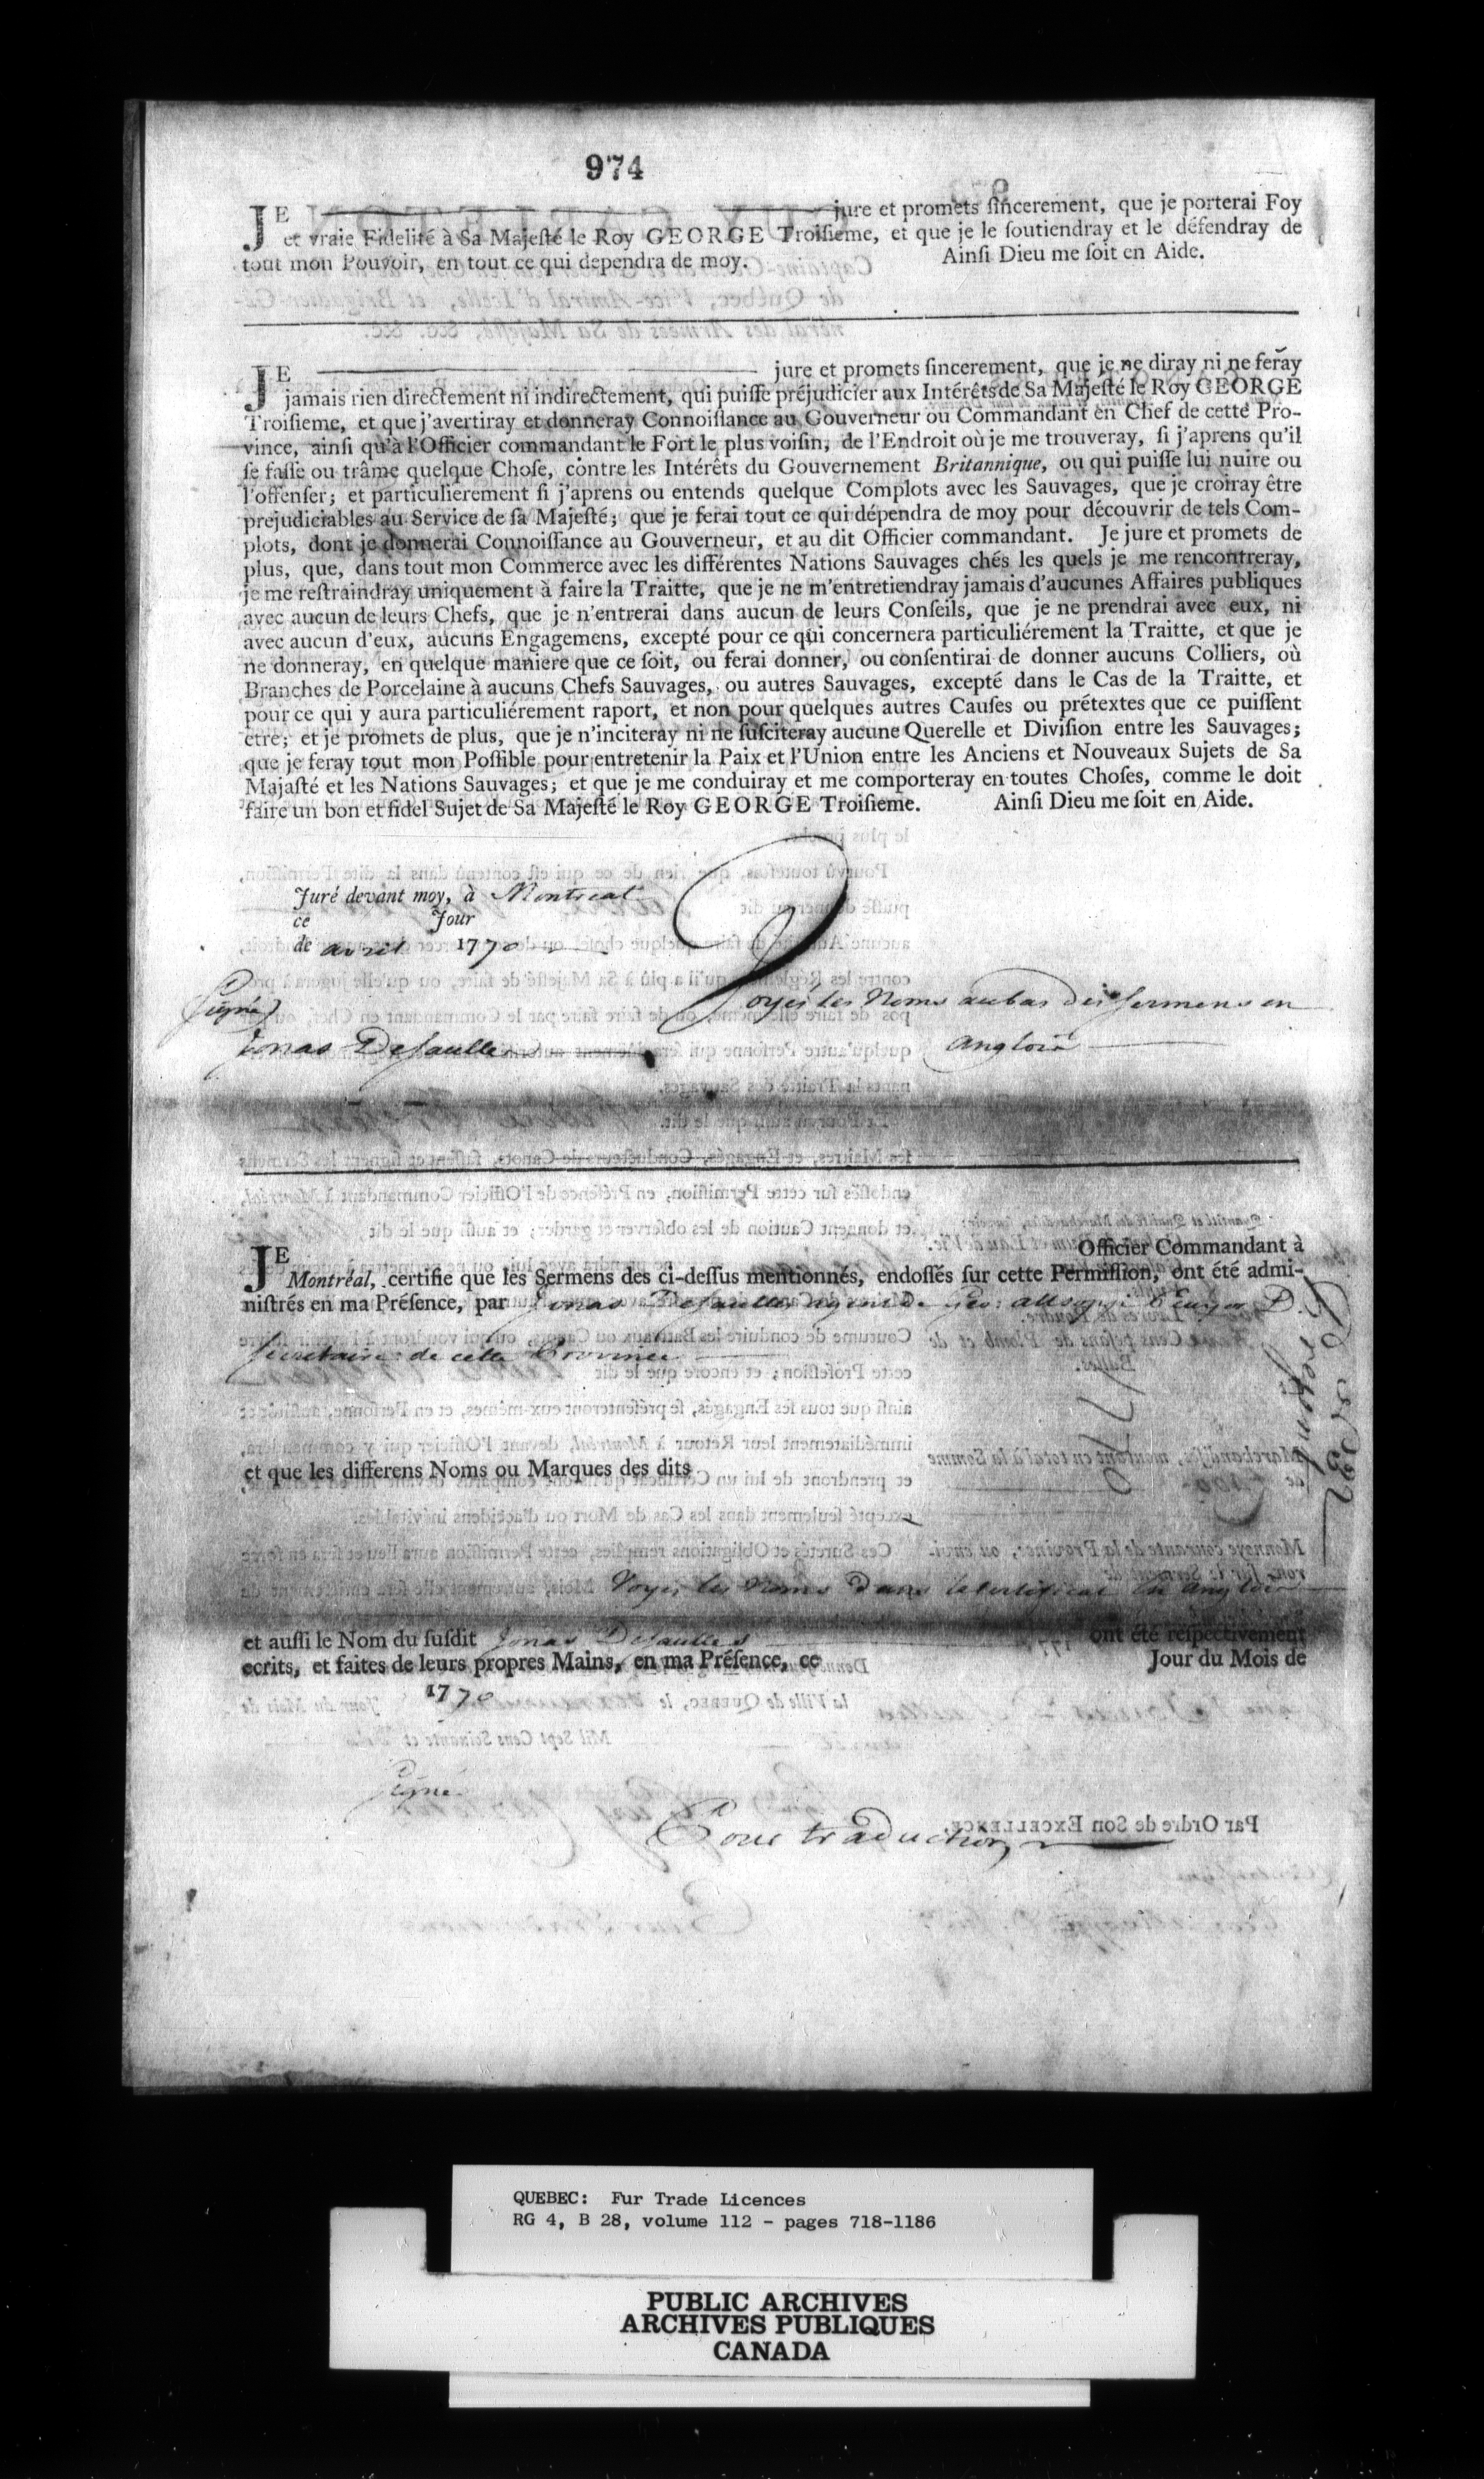 974
JE jure et promets ſincerement, que je porterai Foy
et vraie Fidelité à Sa Majeſté le Roy GEORGE Troiſieme, et que je le ſoutiendray et le défendray de
tout mon Pouvoir, en tout ce qui dependra de moy. Ainſi Dieu me ſoit en Aide.
JE jure et promets ſincerement, que je ne diray ni ne feray
jamais rien directement ni indirectement, qui puiſſe préjudicier aux Intérêts de Sa Majeſté le Roy GEORGE
Troiſieme, et que j'avertiray et donneray Connoiſſance au Gouverneur ou Commandant en Chef de cette Pro-
vince, ainſi qu'à l'Officier commandant le Fort le plus voiſin, de l'Endroit où je me trouveray, ſi j'aprens qu'il
ſe faſſe ou trâme quelque Choſe, contre les Intérêts du Gouvernement Britannique, ou qui puiſſe lui nuire ou
l'offenſer; et particulierement ſi j'aprens ou entends quelque Complots avec les Sauvages, que je croiray être
prejudiciables au Service de ſa Majeſté; que je ferai tout ce qui dépendra de moy pour découvrir de tels Com-
plots, dont je donnerai Connoiſſance au Gouverneur, et au dit Officier commandant. Je jure et promets de
plus, que, dans tout mon Commerce avec les différentes Nations Sauvages chés les quels je me rencontreray,
je me reſtraindray uniquement à faire la Traitte, que je ne m'entretiendray jamais d'aucunes Affaires publiques
avec aucun de leurs Chefs, que je n'entrerai dans aucun de leurs Conſeils, que je ne prendrai avec eux, ni
avec aucun d'eux, aucuns Engagemens, excepté pour ce qui concernera particuliérement la Traitte, et que je
ne donneray, en quelque maniere que ce ſoit, ou ferai donner, ou conſentirai de donner aucuns Colliers, où
Branches de Porcelaine à aucuns Chefs Sauvages, ou autres Sauvages, excepté dans le Cas de la Traitte, et
pour ce qui y aura particuliérement raport, et non pour quelques autres Cauſes ou prétextes que ce puiſſent
être; et je promets de plus, que je n'inciteray ni ne ſuſciteray aucune Querelle et Diviſion entre les Sauvages;
que je feray tout mon Poſſible pour entretenir la Paix et l'Union entre les Anciens et Nouveaux Sujets de Sa
Majaſté et les Nations Sauvages; et que je me conduiray et me comporteray en toutes Choſes, comme le doit
faire un bon et fidel Sujet de Sa Majeſté le Roy GEORGE Troiſieme. Ainſi Dieu me ſoit en Aide.
Juré devant moy, à Montreal
ce Jour
de avril 1770
Voyés les Noms au bas des Sermens en
Anglois
Signé
Jonas Desaulles
JE Officier Commandant à
Montréal, certifie que les Sermens des ci-deſſus mentionnés, endoſſés ſur cette Permiſſion, ont été admi-
niſtrés en ma Préſence, par Jonas Desaulles agent de Geo: allsopp Ecuyer D.
Secretaire de cette Province
et que les differens Noms ou Marques des dits
Voyés les Noms dans le Certificat en Anglois
et auſſi le Nom du ſuſdit Jonas Desaulles ont été reſpectivement
ecrits, et faites de leurs propres Mains, en ma Préſence, ce Jour du Mois de
1770
Signé
Pour traduction
1770
QUEBEC: Fur Trade Licences
RG 4, B 28, volume 112 - pages 718-1186
PUBLIC ARCHIVES
ARCHIVES PUBLIQUES
CANADA